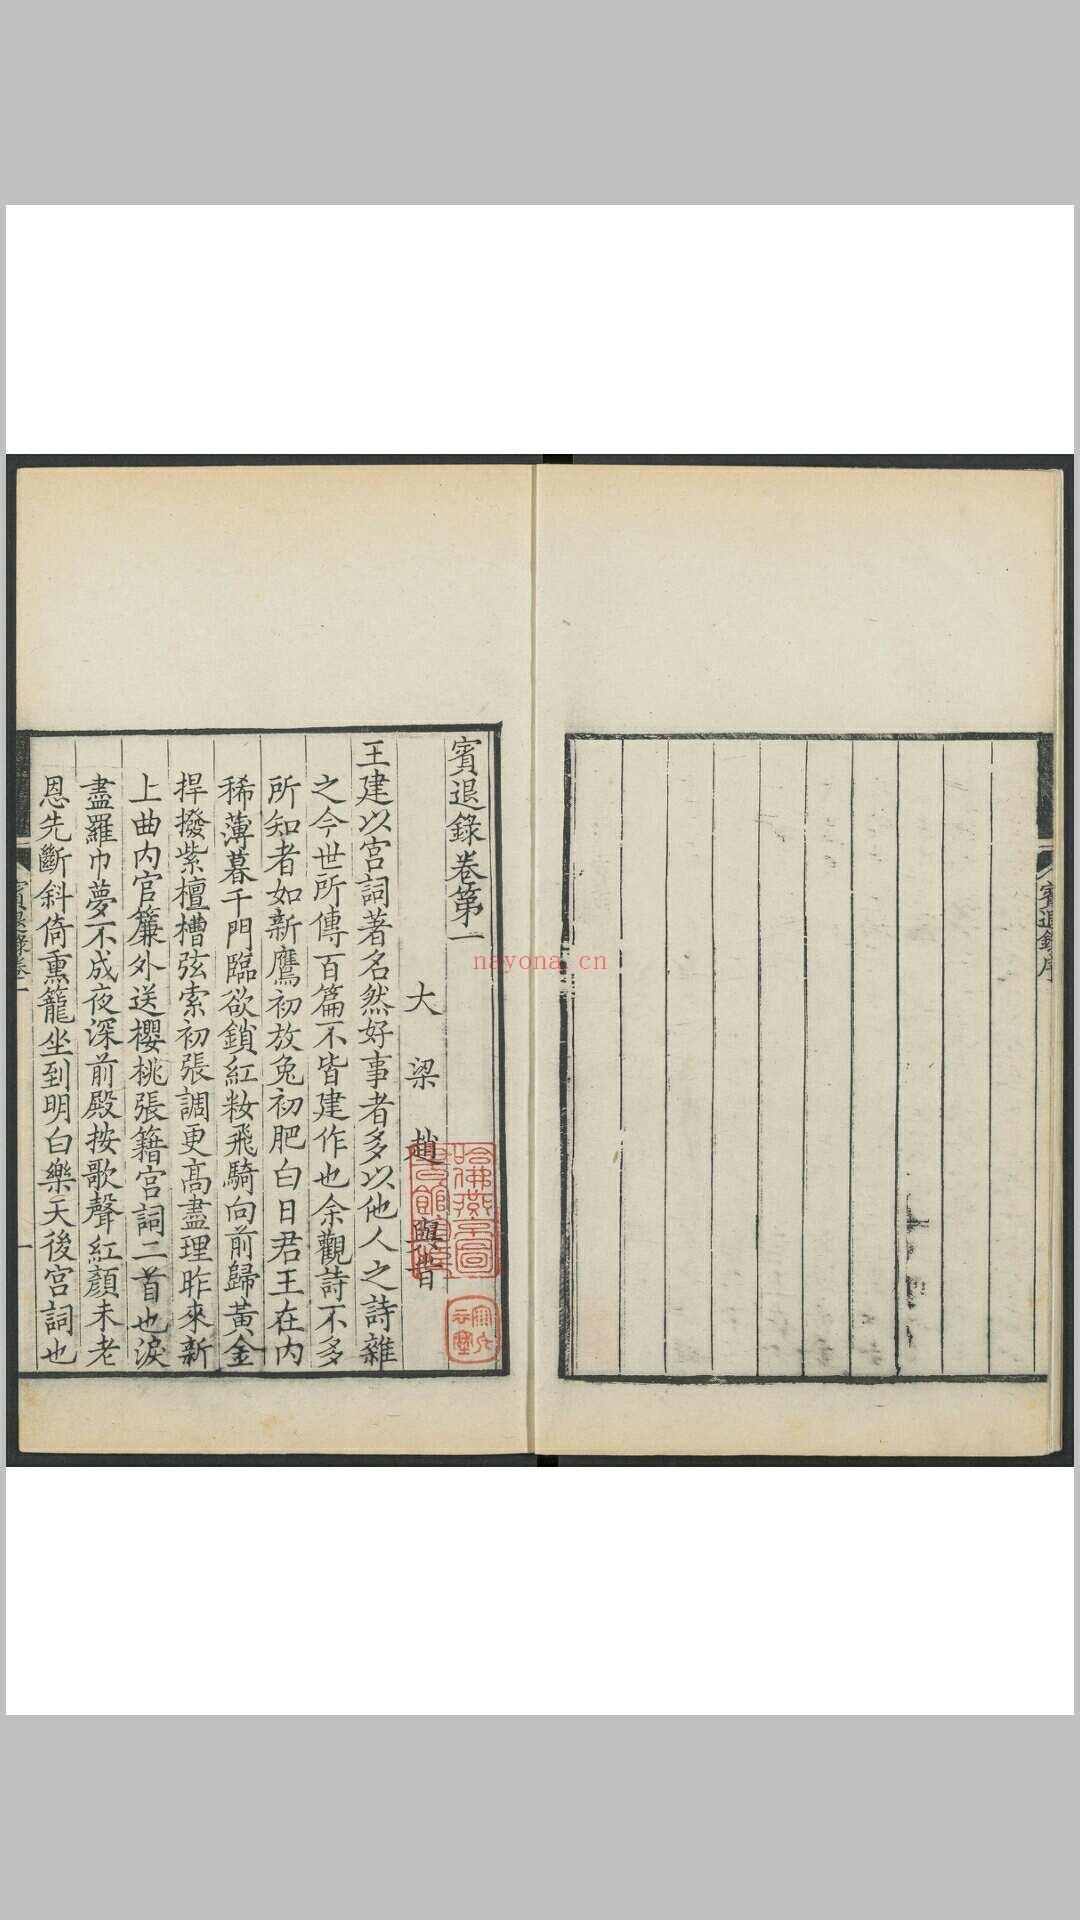 賓退錄序
賓退錄卷第一
大梁趙與旹
王建以宮詞著名然好事者多以他人之詩雜
之今世所傳百篇不皆建作也余觀詩不多
所知者如新鷹初放兔初肥白日君王在內
稀薄暮千門臨欲鎖紅粧飛騎向前歸黃金
捍撥紫檀槽弦索初張調更高盡理昨來新
上曲內官簾外送櫻桃張籍宮詞二首也淚
盡羅巾夢不成夜深前殿按歌聲紅顏未老
恩先斷斜倚熏籠坐到明白樂天後宮詞也
賓退錄卷一
一
哈佛燕京圖
書館
nayona.cn